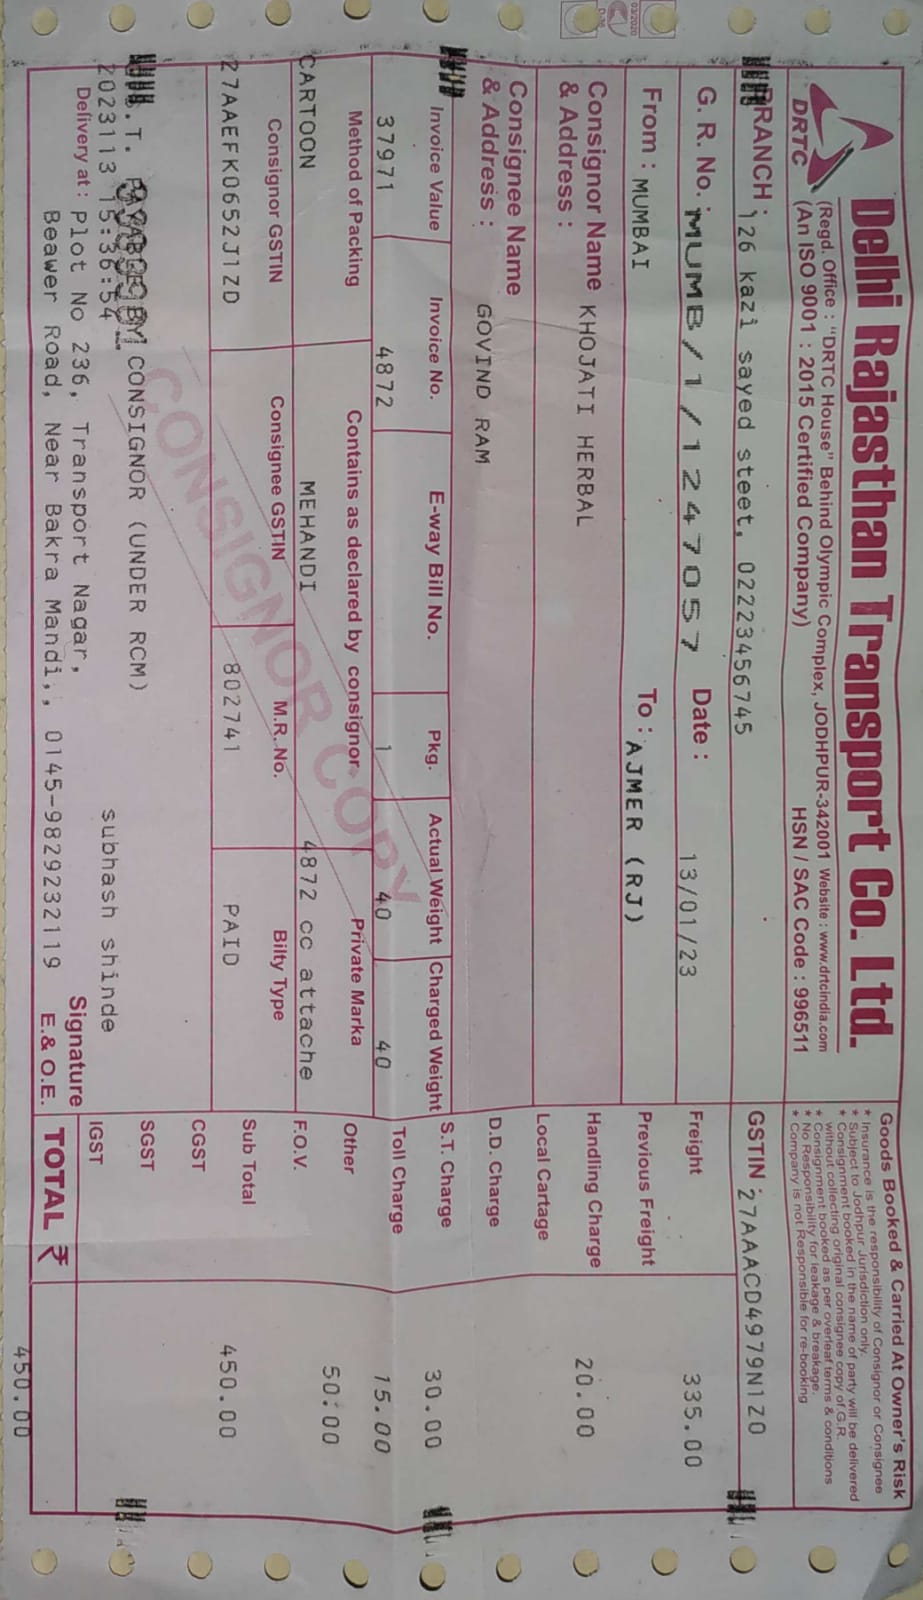 Delhi Rajasthan Transport Co. Ltd.
DRTC
(Regd. Office : "DRTC House" Behind Olympic Complex, JODHPUR-342001 Website : www.drtcindia.com
(An ISO 9001 : 2015 Certified Company)
HSN / SAC Code : 996511
Goods Booked & Carried At Owner's Risk
* Insurance is the responsibility of Consignor or Consignee
* Subject to Jodhpur Jurisdiction only.
* Consignment booked in the name of party will be delivered
without collecting original consignee copy of G.R.
* Consignment booked as per overleaf terms & conditions
* No Responsibility for leakage & breakage.
* Company is not Responsible for re-booking
BRANCH : 126 kazi sayed steet, 02223456745
GSTIN : 27AAACD4979N1ZO
G. R. No. : MUMB/1/1247057 Date : 13/01/23
Freight 335.00
From : MUMBAI To : AJMER (RJ)
Previous Freight
Consignor Name & Address : KHOJATI HERBAL
Handling Charge 20.00
Local Cartage
Consignee Name & Address : GOVIND RAM
D.D. Charge
Invoice Value Invoice No. E-way Bill No. Pkg. Actual Weight Charged Weight
S.T. Charge 30.00
37971 4872 1 40 40
Toll Charge 15.00
Method of Packing Contains as declared by consignor Private Marka
Other 50:00
CARTOON MEHANDI 4872 cc attache
F.O.V.
Consignor GSTIN Consignee GSTIN M.R. No. Bilty Type
Sub Total 450.00
27AAEFK0652J1ZD 802741 PAID
CGST
CONSIGNOR COPY
.T. PAYABLE BY CONSIGNOR (UNDER RCM)
SGST
2023113 15:36:54 subhash shinde
IGST
Delivery at : Plot No 236, Transport Nagar,
Signature
Beawer Road, Near Bakra Mandi,, 0145-9829232119 E.& O.E.
TOTAL ₹ 450.00